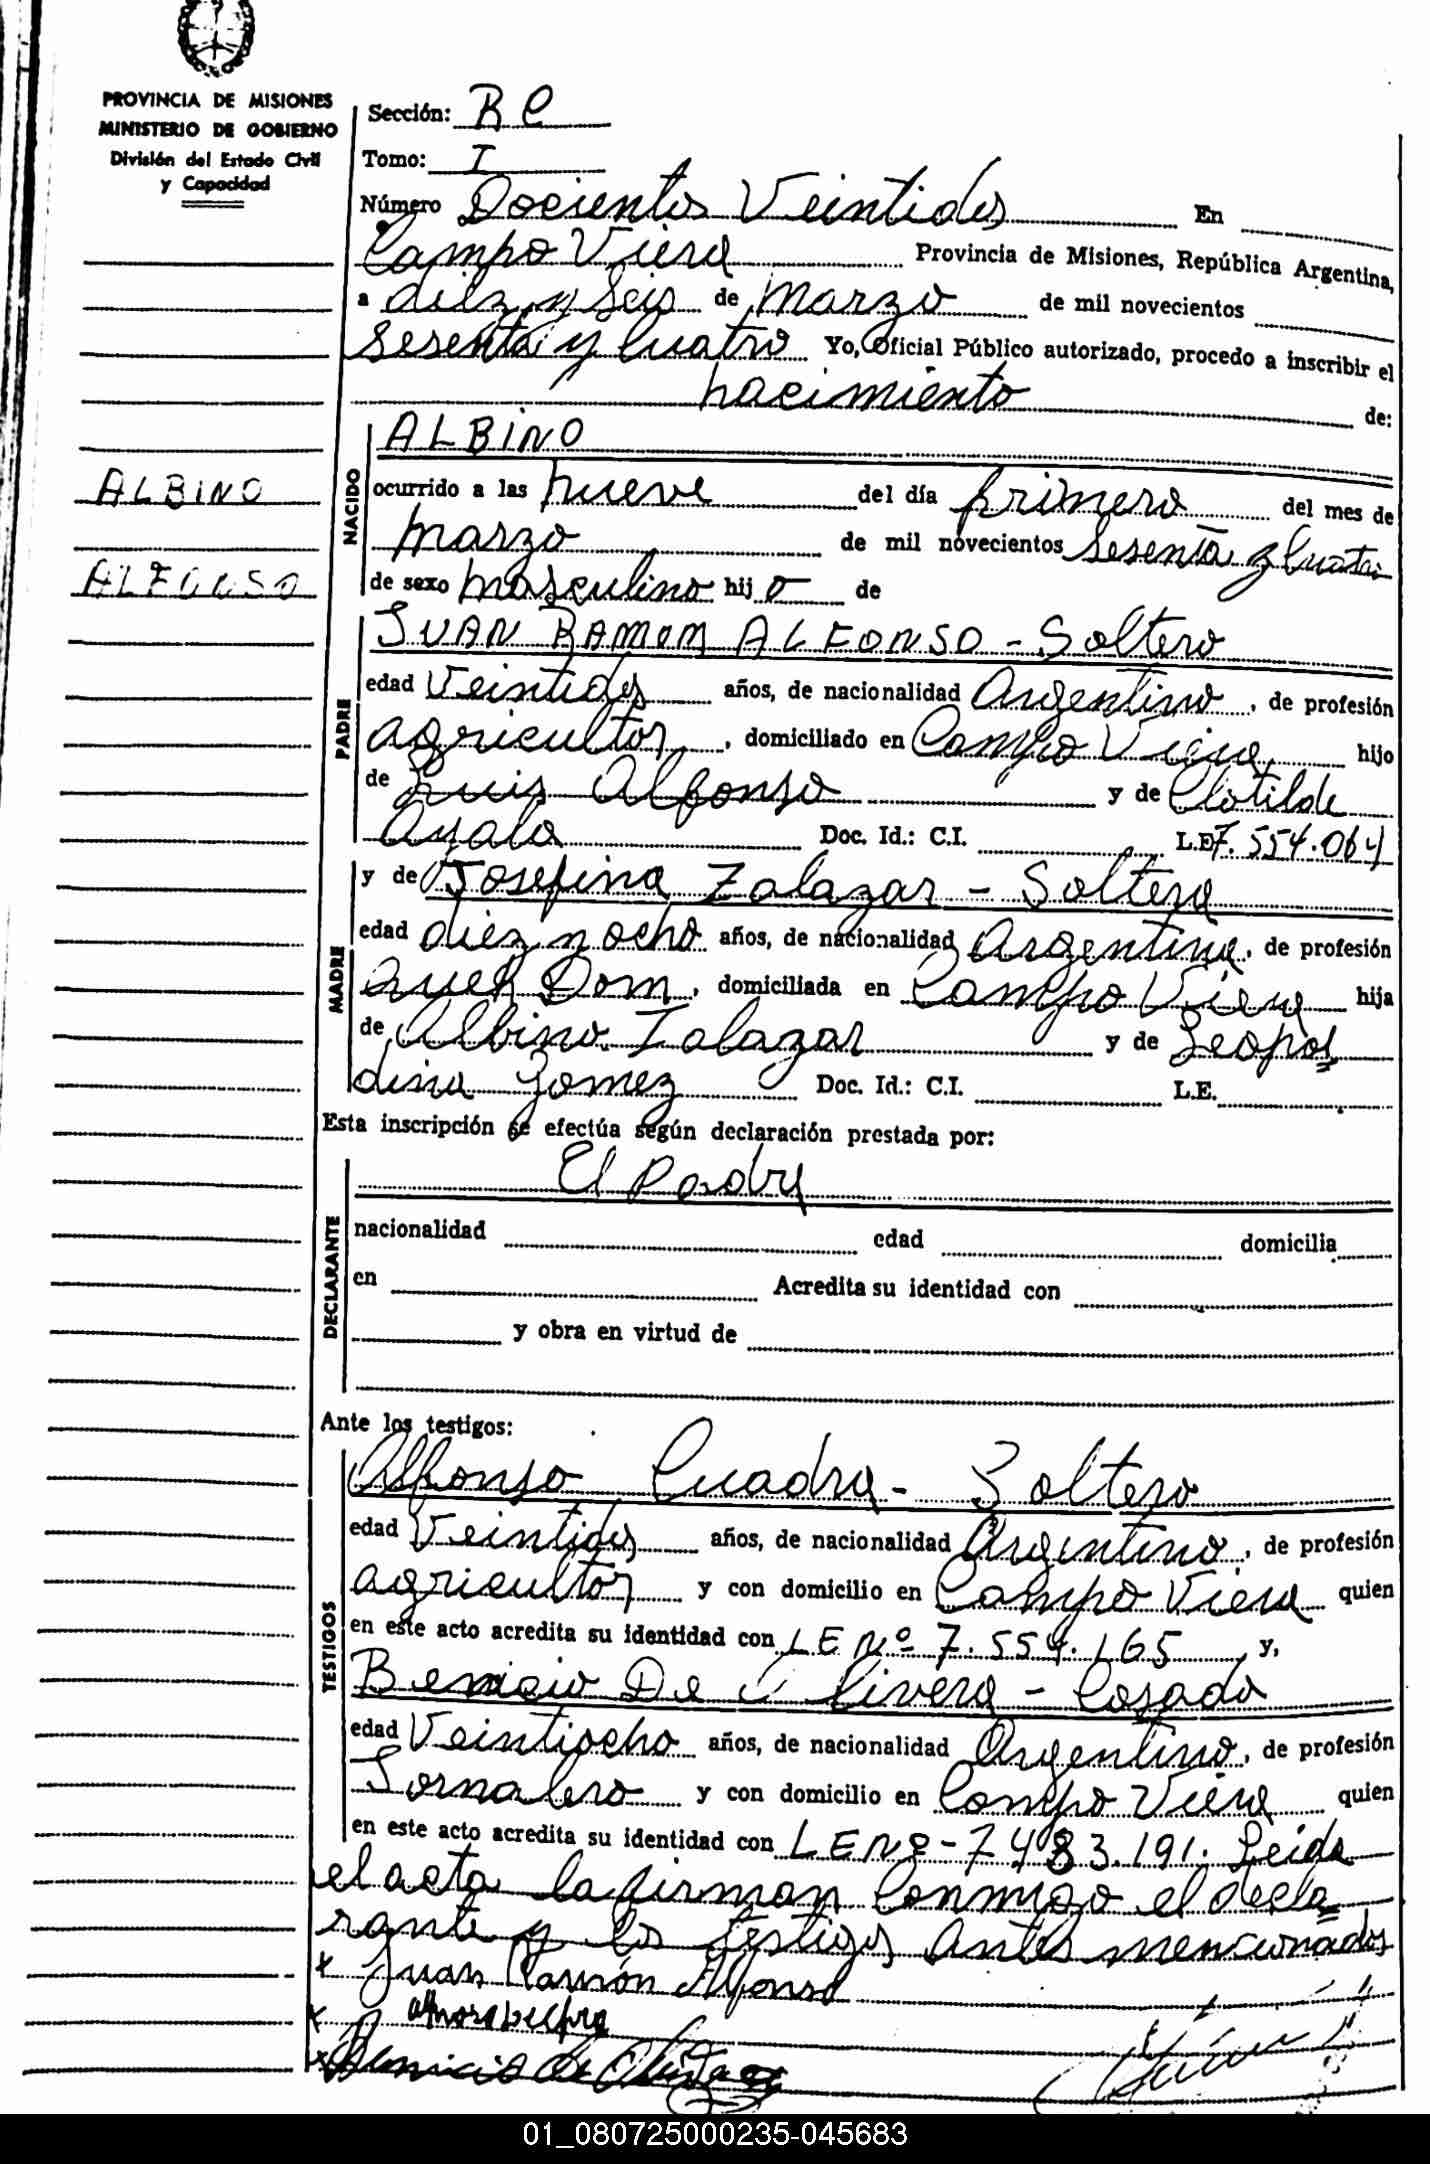 PROVINCIA DE MISIONES
MINISTERIO DE GOBIERNO
División del Estado Civil
y Capacidad
ALBINO
ALFONSO
Sección: R C
Tomo: I
Número Docientos Veintidos En
Campo Viera Provincia de Misiones, República Argentina,
a diez y Seis de Marzo de mil novecientos
Sesenta y Cuatro Yo, Oficial Público autorizado, procedo a inscribir el
nacimiento de:
NACIDO
ALBINO
ocurrido a las nueve del día primero del mes de
Marzo de mil novecientos Sesenta y Cuatro
de sexo Masculino hij o de
PADRE
JUAN RAMON ALFONSO - Soltero
edad Veintidos años, de nacionalidad Argentino, de profesión
agricultor, domiciliado en Campo Viera hijo
de Luis Alfonso y de Clotilde
Ayala Doc. Id.: C.I. L.E 7.554.064
MADRE
y de Josefina Zalazar - Soltera
edad diez y ocho años, de nacionalidad Argentina, de profesión
Queh Dom, domiciliada en Campo Viera hija
de Albino Zalazar y de Leopol
dina Gomez Doc. Id.: C.I. L.E.
Esta inscripción se efectúa según declaración prestada por:
DECLARANTE
El Padre
nacionalidad edad domicilia
en Acredita su identidad con
y obra en virtud de
Ante los testigos:
TESTIGOS
Alfonso Cuadra - Soltero
edad Veintidos años, de nacionalidad Argentino, de profesión
agricultor y con domicilio en Campo Viera quien
en este acto acredita su identidad con LE Nº 7.554.165 y,
Benicio De Olivera - Casado
edad Veintiocho años, de nacionalidad Argentino, de profesión
Jornalero y con domicilio en Campo Viera quien
en este acto acredita su identidad con LE Nº - 7483.191. Leida
el acta la firman Conmigo el decla
rante y los testigos antes mencionados
x Juan Ramón Alfonso
x
x Benicio de
01_080725000235-045683